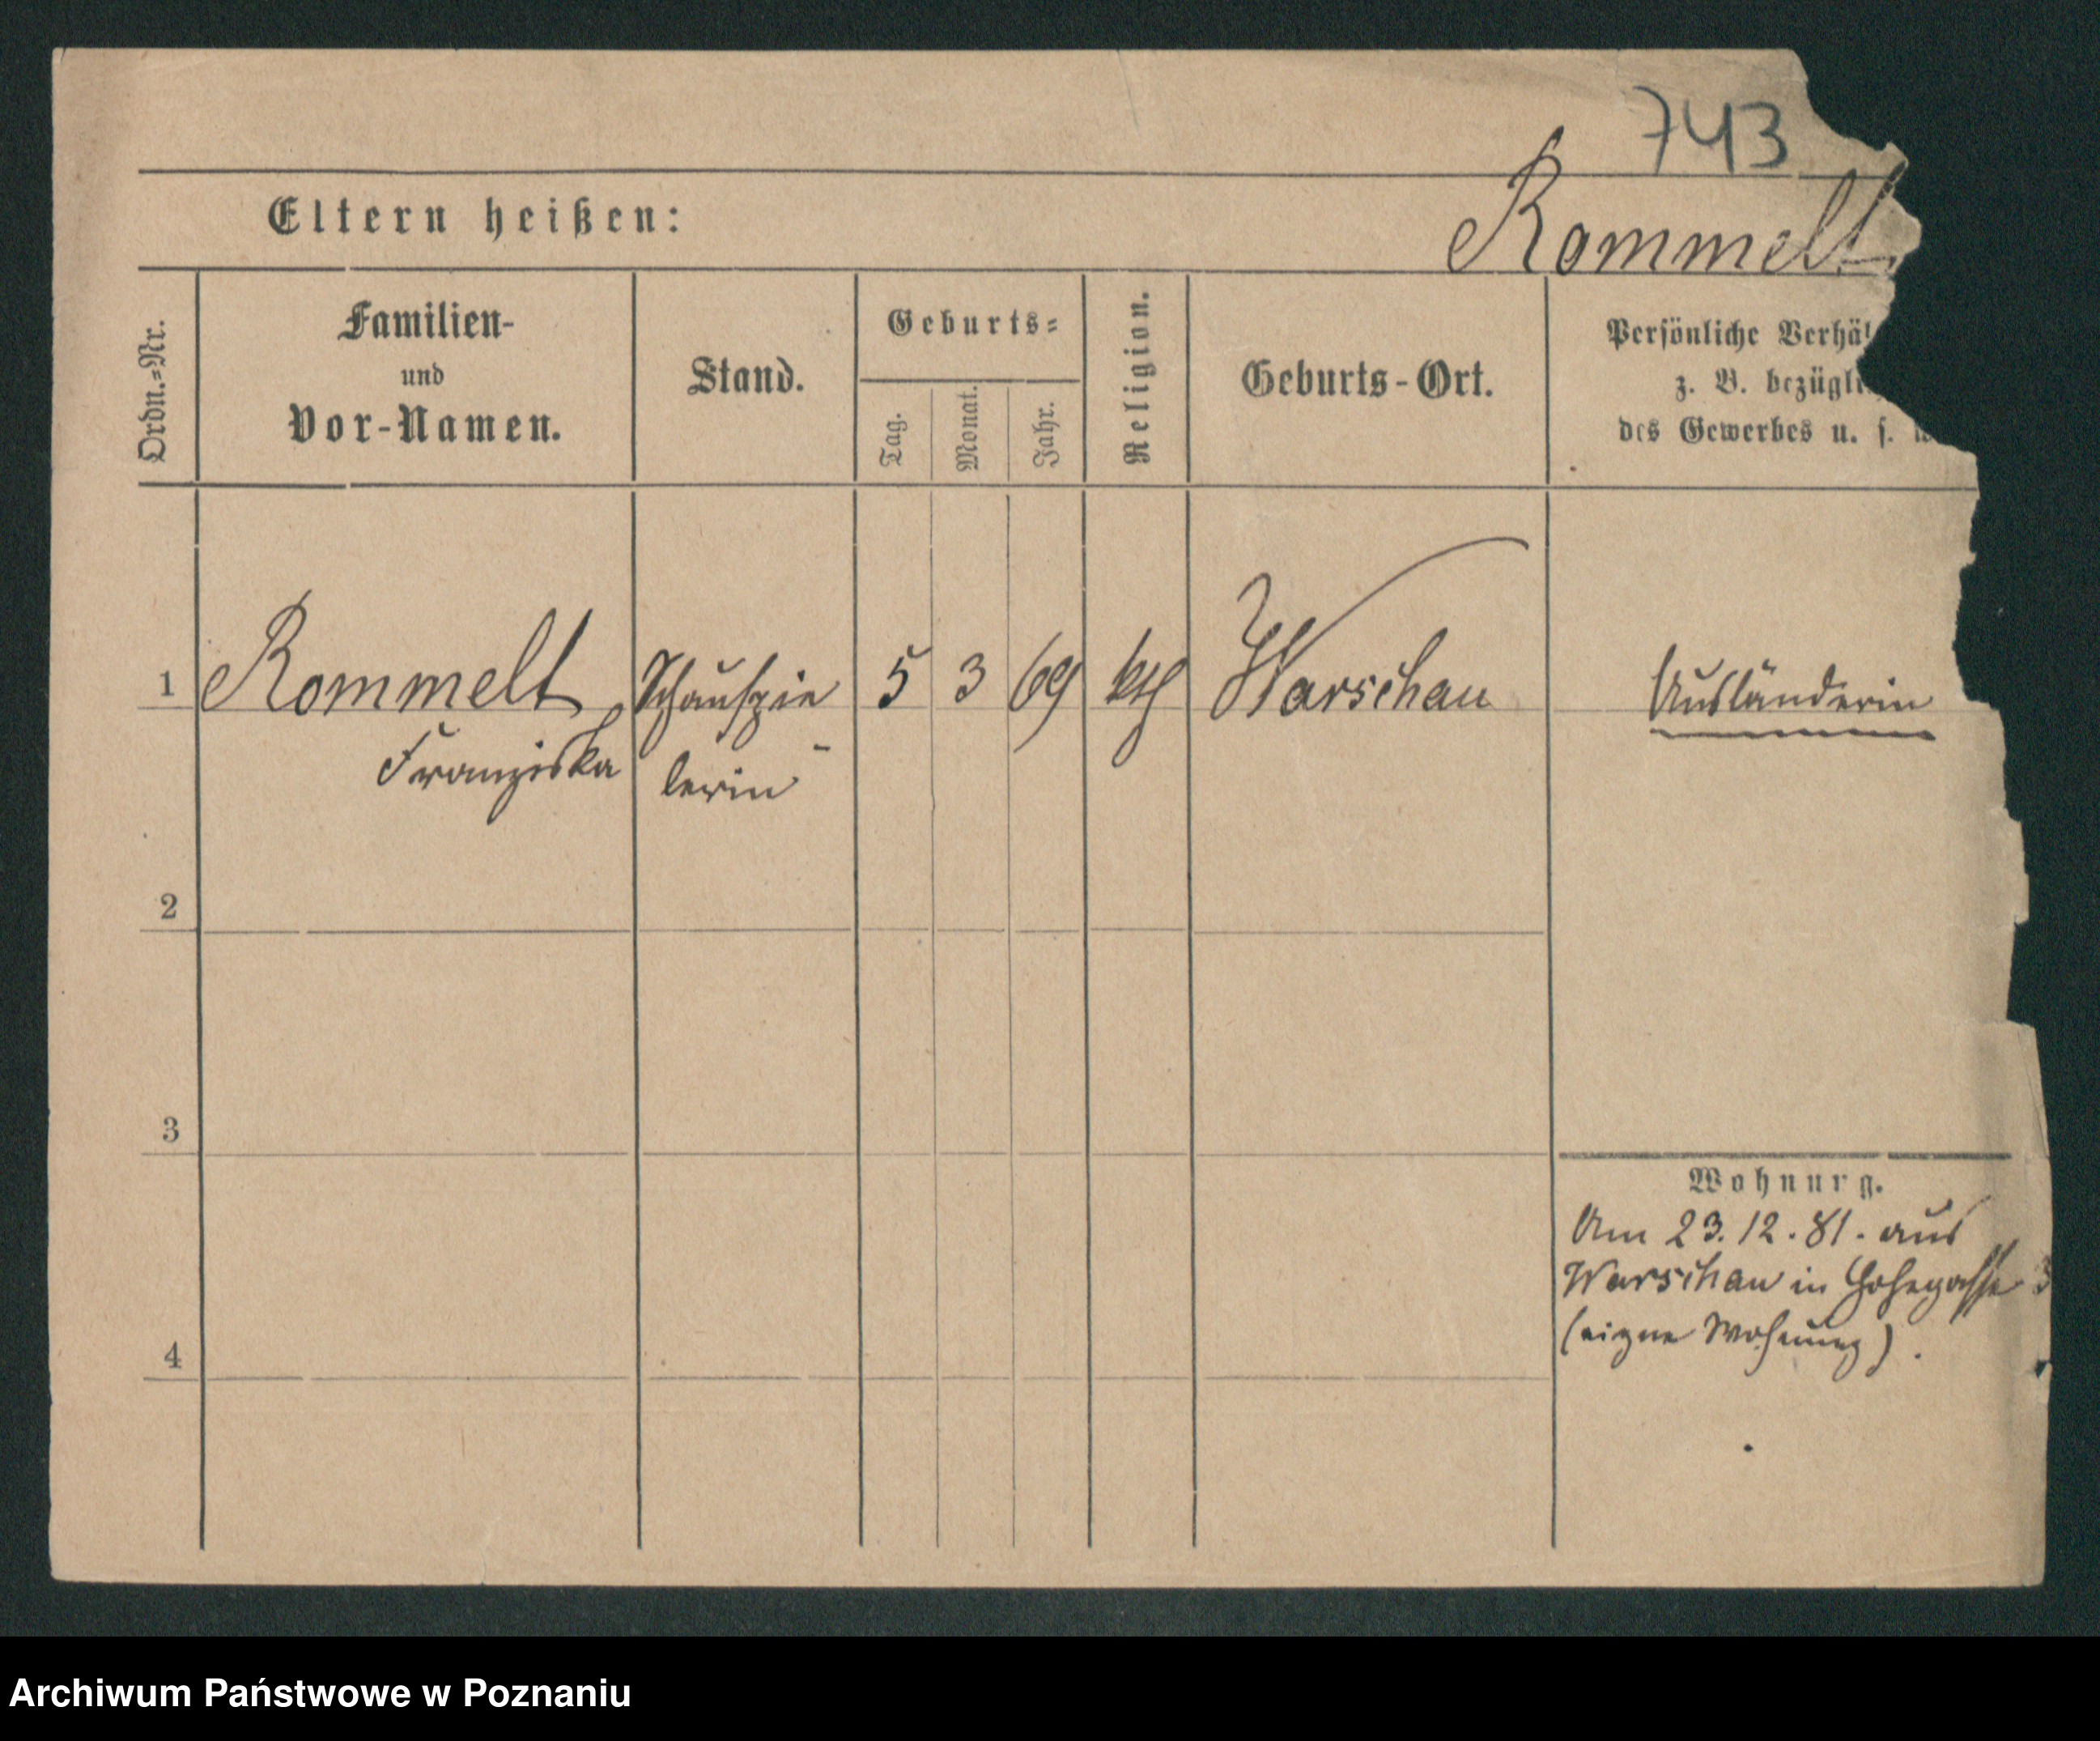 743
Eltern heißen:
Rommelt
Ordn.=Nr.
Familien-
und
Vor-Namen.
Stand.
Geburts=
Tag.
Monat.
Jahr.
Religion.
Geburts-Ort.
Persönliche Verhäl
z. B. bezügli
des Gewerbes u. s. w
1 Rommelt Schauspie 5 3 69 kth Warschau Ausländerin
Franziska lerin
2
3
Wohnung.
Am 23.12.81. aus
Warschau in Hohegasse 3
(eigne Wohnung).
4
Archiwum Państwowe w Poznaniu